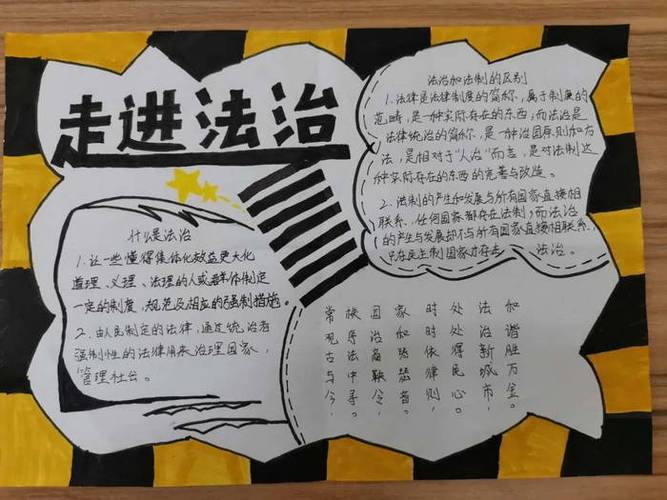 走进法治
什么是法治
1.让一些懂得集体化效益更大化
道理、义理、法理的人或群体制定
一定的制度、规范及相应的强制措施。
2.由人民制定的法律,通过统治者
强制性的法律用来治理国家,
管理社会。
法治和法制的区别
1.法律是法律制度的简称,属于制度的
范畴,是一种实际存在的东西,而法治是
法律统治的简称,是一种治国原则和方
法,是相对于"人治"而言,是对法制这
种实际存在的东西的完善与改造。
2.法制的产生和发展与所有国家直接相
联系,任何国家都存在法制;而法治
的产生与发展却不与所有国家直接相联系,
只在民主制国家才存在 法治。
常观古与今,
秩序法中寻。
国治商鞅令,
家和瑟音。
时时依律则,
处处得民心。
法治新城市,
和谐胜万金。